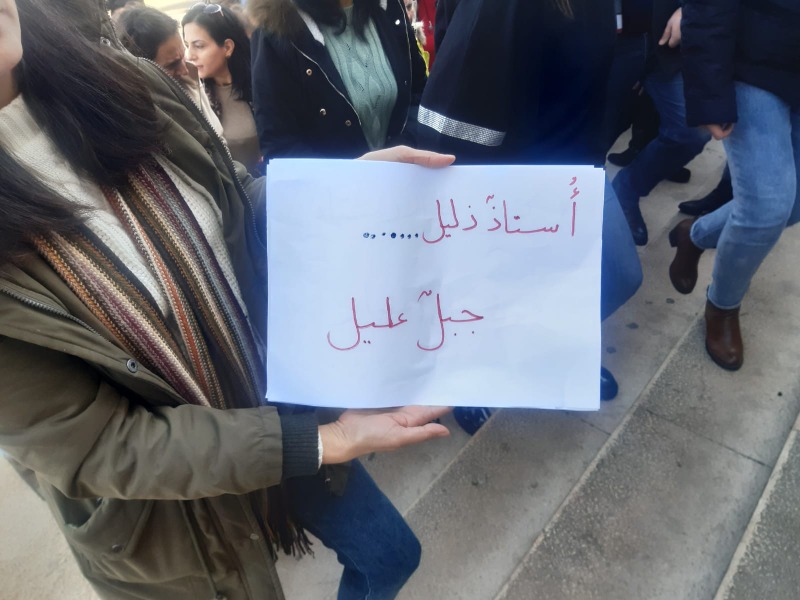 أُستاذٌ ذليل......
جبلٌ عليل